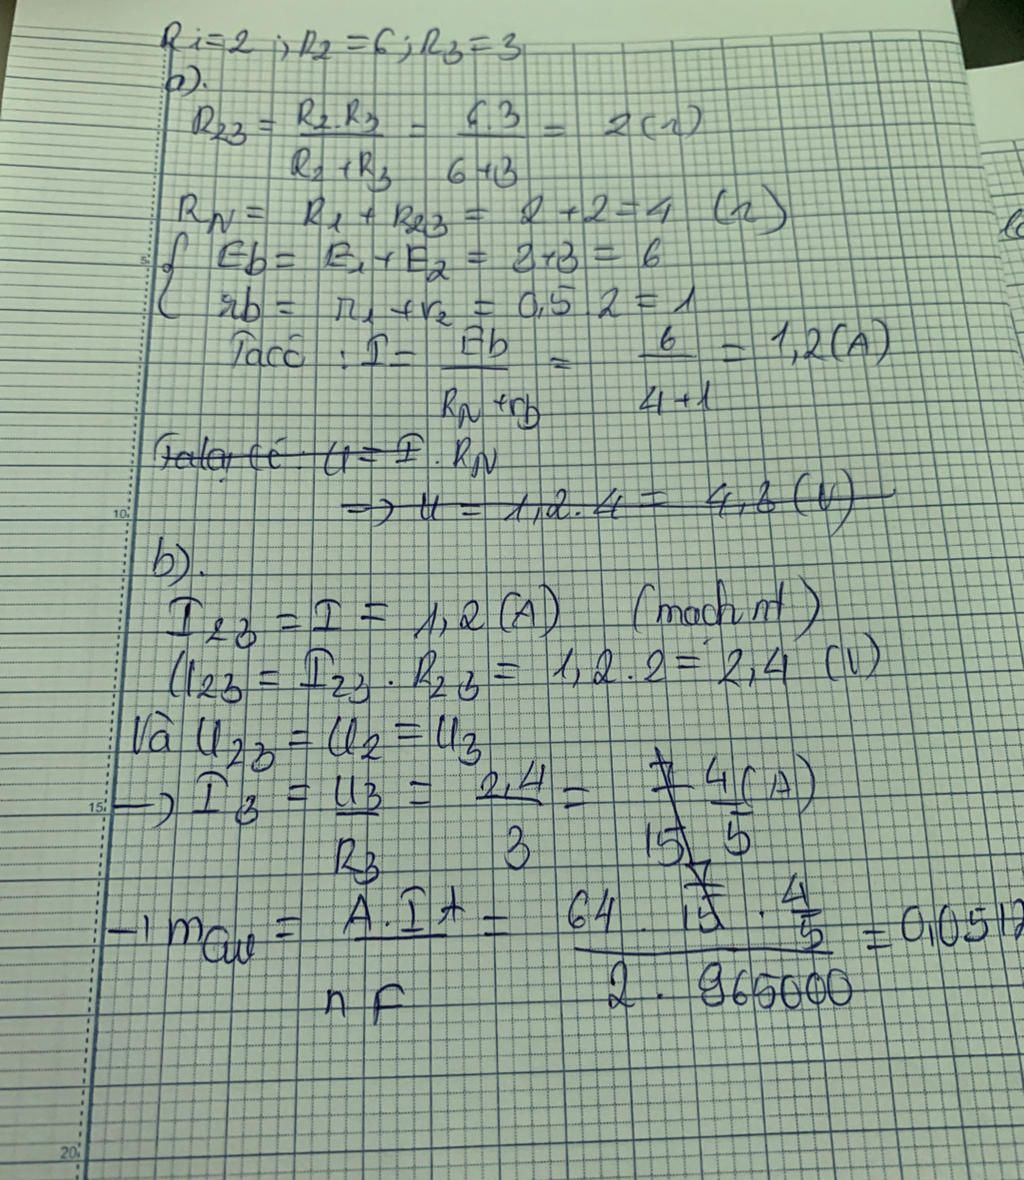 R1=2 ; R2 =6 ; R3 = 3
a).
R23 = R2.R3 / R2 + R3 = 6.3 / 6+3 = 2 (Ω)
RN = R1 + R23 = 2 + 2 = 4 (Ω)
{ Eb = E1 + E2 = 3+3 = 6
rb = r1 + r2 = 0,5 . 2 = 1
Ta có : I = Eb / RN + rb = 6 / 4+1 = 1,2 (A)
U = I . RN
=> U = 1,2 . 4 = 4,8 (V)
b).
I23 = I = 1,2 (A) (mạch nt)
U23 = I23 . R23 = 1,2 . 2 = 2,4 (V)
Và U23 = U2 = U3
→ I3 = U3 / R3 = 2,4 / 3 = 4 / 5 (A)
→ mCu = A.I t / n F = 64 . 4/5 / 2 . 965000 = 0,0512
5
10
15
20